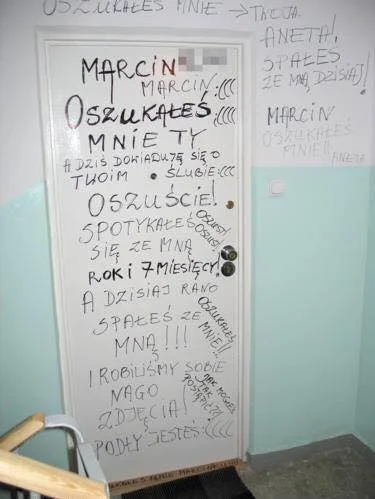 OSZUKAŁEŚ MNIE → TWOJA
ANETA!
SPAŁEŚ
ZE MNĄ DZISIAJ!
MARCIN
OSZUKAŁEŚ
MNIE!!
ANETA
MARCIN
MARCIN:(((
OSZUKAŁEŚ:(((
MNIE TY
A DZIŚ DOWIADUJĘ SIĘ O
TWOIM ŚLUBIE:(((
OSZUŚCIE!
SPOTYKAŁEŚ
SIĘ ZE MNĄ
OSZUST!
OSZUST!
ROK I 7 MIESIĘCY!
A DZISIAJ RANO
SPAŁEŚ ZE
MNĄ!!!
OSZUKAŁEŚ
MNIE!!!
I ROBILIŚMY SOBIE
NAGO
ZDJĘCIA!
JAK MOGŁEŚ
TAK
POSTĄPIĆ?!
PODŁY JESTEŚ:((((